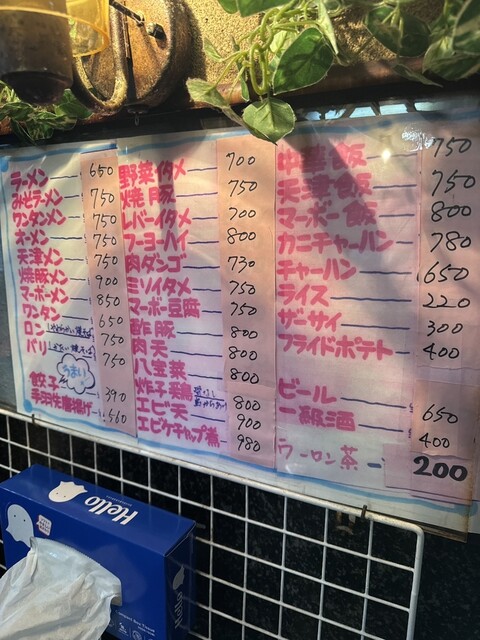 ラーメン 650
みそラーメン 750
ワンタンメン 750
オーメン 750
天津メン 750
焼豚メン 900
マーボーメン 850
ワンタン 650
ロン やわらかい焼そば 750
パリ かたい焼そば 750
うまい
餃子 390
手羽先唐揚げ 560
野菜イタメ 700
焼豚 750
レバーイタメ 700
フーヨーハイ 800
肉ダンゴ 730
ミソイタメ 750
マーボ豆腐 750
酢豚 800
肉天 800
八宝菜 800
炸子鶏 800
エビ天 900
エビケチャップ煮 980
中華飯 750
天津飯 750
マーボー飯 800
カニチャーハン 780
チャーハン 650
ライス 220
ザーサイ 300
フライドポテト 400
ビール 650
二級酒 400
ウーロン茶 200
Hello
Hello